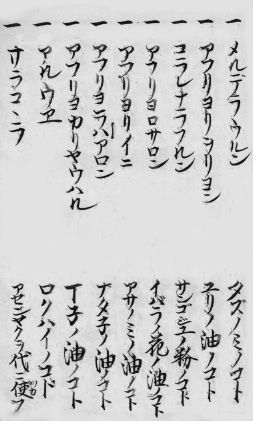 一 メルデラウルン タズノミノコト
一 アフリヨリヨリヨン ユリノ油ノコト
一 コラレナラフルン サンゴジユノ粉ノコト
一 アフリヨロサロン イバラノ花ノ油ノコト
一 アフリヨリイニ アサノミノ油ノコト
一 アフリヨニラハアロン ナタ子ノ油ノコト
一 アフリヨカリヤウハル 丁子ノ油ノコト
一 アルウヱ ロクハイノコト
一 サラコンラ アセンヤクヲ代ニ使フ